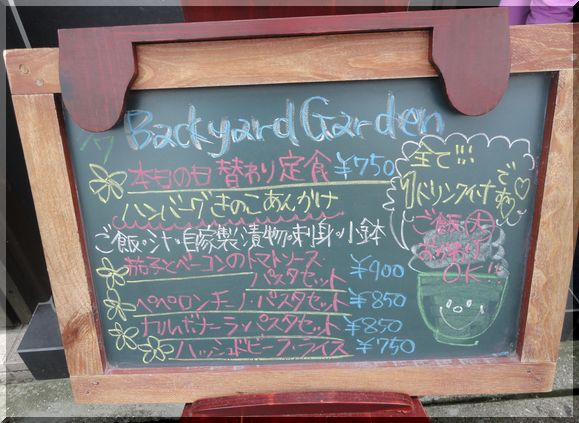 Backyard Garden
本日の日替わり定食 ¥750
ハンバーグきのこあんかけ
ご飯・汁・自家製漬物・刺身・小鉢
茄子とベーコンのトマトソース
パスタセット ¥900
ペペロンチーノ・パスタセット ¥850
カルボナーラ・パスタセット ¥850
ハッシュドビーフ・ライス ¥750
全て!!!
1ドリンク付で
すヨ♡
ご飯 大
OK